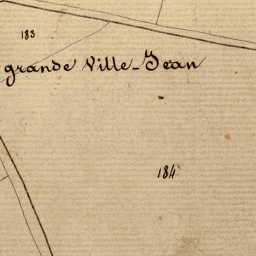 183
grande Ville-Jean
184